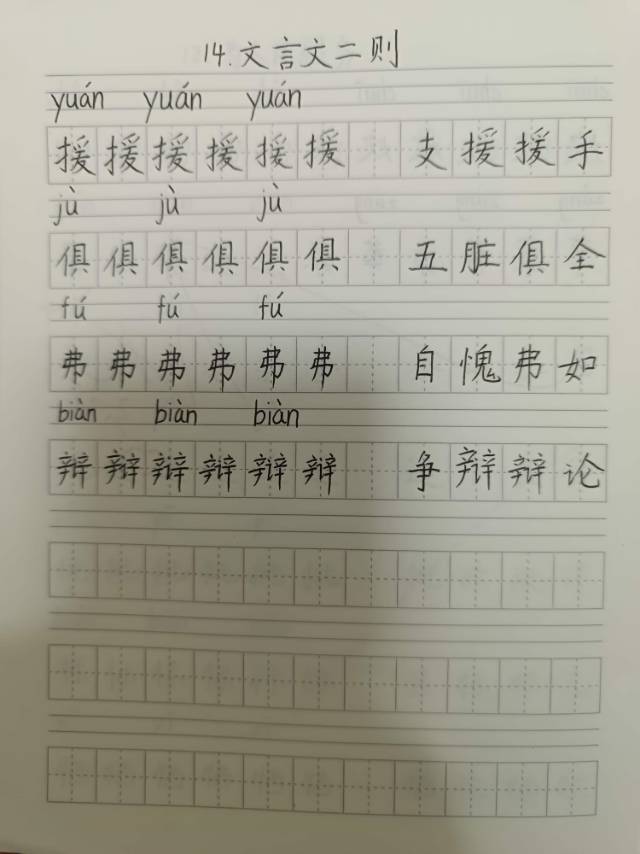 14.文言文二则
yuán yuán yuán
援援援援援援 支援援手
jù jù jù
俱俱俱俱俱俱 五脏俱全
fú fú fú
弗弗弗弗弗弗 自愧弗如
biàn biàn biàn
辩辩辩辩辩辩 争辩辩论